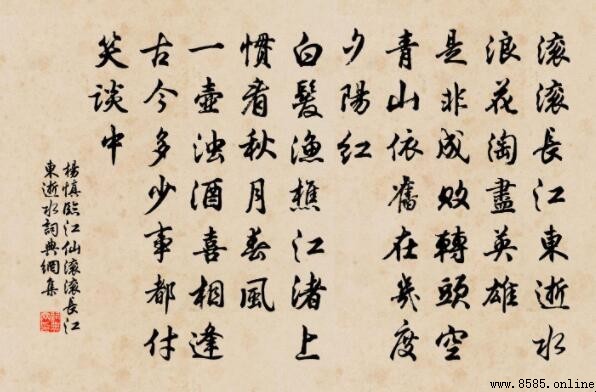 滚滚長江東逝水
浪花淘盡英雄
是非成败轉頭空
青山依舊在幾度
夕陽红
白髮漁樵江渚上
慣看秋月春風
一壶浊酒喜相逢
古今多少事都付
笑谈中
楊慎臨江仙滚滚長江
東逝水詞典網集
www.8585.online